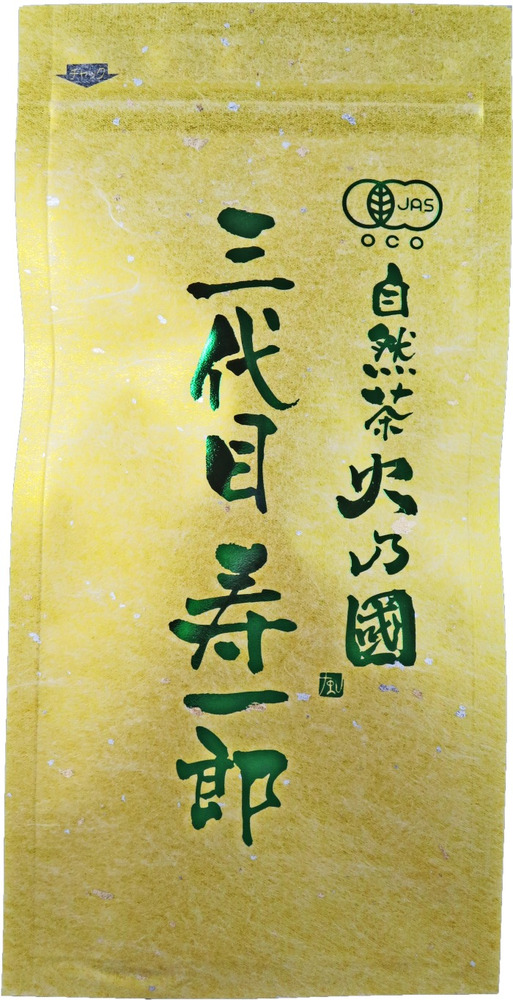 チャック
JAS
OCO
自然茶火乃國
三代目 寿一郎